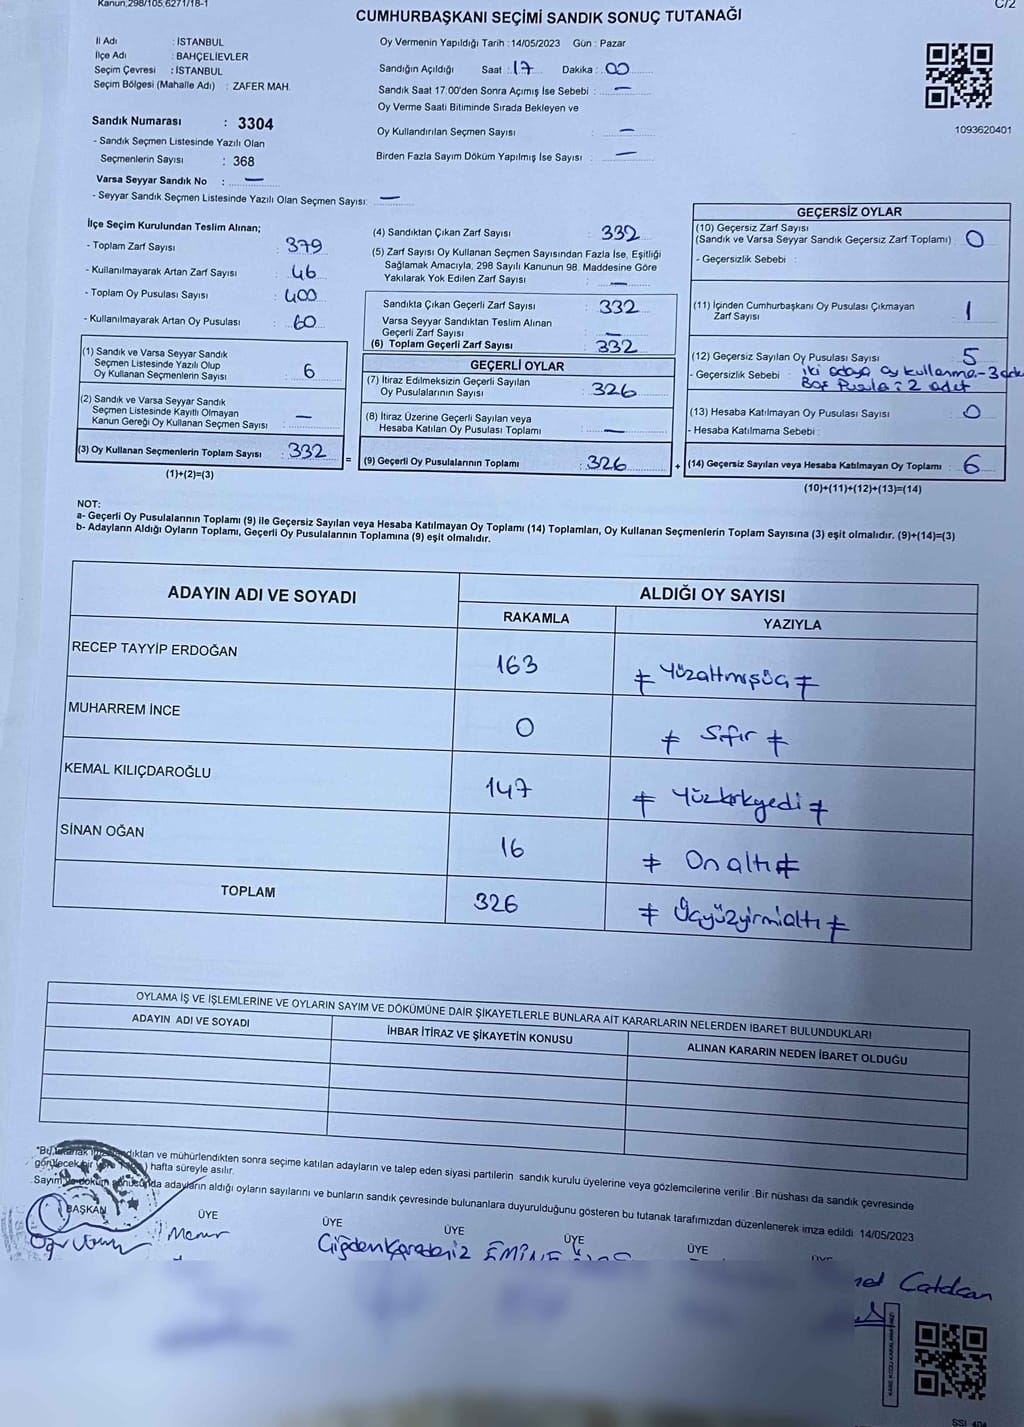 Kanun;298/105;6271/18-1
C/2
CUMHURBAŞKANI SEÇİMİ SANDIK SONUÇ TUTANAĞI
İl Adı : İSTANBUL
İlçe Adı : BAHÇELİEVLER
Seçim Çevresi : İSTANBUL
Seçim Bölgesi (Mahalle Adı) : ZAFER MAH.
Sandık Numarası : 3304
- Sandık Seçmen Listesinde Yazılı Olan
Seçmenlerin Sayısı : 368
Varsa Seyyar Sandık No : —
- Seyyar Sandık Seçmen Listesinde Yazılı Olan Seçmen Sayısı: —
Oy Vermenin Yapıldığı Tarih : 14/05/2023 Gün : Pazar
Sandığın Açıldığı Saat : 17 Dakika : 00
Sandık Saat 17:00'den Sonra Açımış İse Sebebi : —
Oy Verme Saati Bitiminde Sırada Bekleyen ve
Oy Kullandırılan Seçmen Sayısı : —
Birden Fazla Sayım Döküm Yapılmış İse Sayısı : —
1093620401
İlçe Seçim Kurulundan Teslim Alınan;
- Toplam Zarf Sayısı : 379
- Kullanılmayarak Artan Zarf Sayısı : 46
- Toplam Oy Pusulası Sayısı : 400
- Kullanılmayarak Artan Oy Pusulası : 60
(1) Sandık ve Varsa Seyyar Sandık
Seçmen Listesinde Yazılı Olup
Oy Kullanan Seçmenlerin Sayısı : 6
(2) Sandık ve Varsa Seyyar Sandık
Seçmen Listesinde Kayıtlı Olmayan
Kanun Gereği Oy Kullanan Seçmen Sayısı : —
(3) Oy Kullanan Seçmenlerin Toplam Sayısı : 332
(1)+(2)=(3)
(4) Sandıktan Çıkan Zarf Sayısı : 332
(5) Zarf Sayısı Oy Kullanan Seçmen Sayısından Fazla İse, Eşitliği
Sağlamak Amacıyla, 298 Sayılı Kanunun 98. Maddesine Göre
Yakılarak Yok Edilen Zarf Sayısı : —
Sandıkta Çıkan Geçerli Zarf Sayısı : 332
Varsa Seyyar Sandıktan Teslim Alınan
Geçerli Zarf Sayısı : —
(6) Toplam Geçerli Zarf Sayısı : 332
=
GEÇERLİ OYLAR
(7) İtiraz Edilmeksizin Geçerli Sayılan
Oy Pusulalarının Sayısı : 326
(8) İtiraz Üzerine Geçerli Sayılan veya
Hesaba Katılan Oy Pusulası Toplamı : —
(9) Geçerli Oy Pusulalarının Toplamı : 326
+
GEÇERSİZ OYLAR
(10) Geçersiz Zarf Sayısı
(Sandık ve Varsa Seyyar Sandık Geçersiz Zarf Toplamı) : 0
- Geçersizlik Sebebi :
(11) İçinden Cumhurbaşkanı Oy Pusulası Çıkmayan
Zarf Sayısı : 1
(12) Geçersiz Sayılan Oy Pusulası Sayısı : 5
- Geçersizlik Sebebi : iki adaya oy kullanma - 3 adet
Boş Pusula : 2 adet
(13) Hesaba Katılmayan Oy Pusulası Sayısı : 0
- Hesaba Katılmama Sebebi :
(14) Geçersiz Sayılan veya Hesaba Katılmayan Oy Toplamı : 6
(10)+(11)+(12)+(13)=(14)
NOT:
a- Geçerli Oy Pusulalarının Toplamı (9) ile Geçersiz Sayılan veya Hesaba Katılmayan Oy Toplamı (14) Toplamları, Oy Kullanan Seçmenlerin Toplam Sayısına (3) eşit olmalıdır. (9)+(14)=(3)
b- Adayların Aldığı Oyların Toplamı, Geçerli Oy Pusulalarının Toplamına (9) eşit olmalıdır.
ADAYIN ADI VE SOYADI ALDIĞI OY SAYISI
RAKAMLA YAZIYLA
RECEP TAYYİP ERDOĞAN 163 ≠ Yüzaltmışüç ≠
MUHARREM İNCE 0 ≠ Sıfır ≠
KEMAL KILIÇDAROĞLU 147 ≠ Yüzkırkyedi ≠
SİNAN OĞAN 16 ≠ On altı ≠
TOPLAM 326 ≠ Üçyüzyirmialtı ≠
OYLAMA İŞ VE İŞLEMLERİNE VE OYLARIN SAYIM VE DÖKÜMÜNE DAİR ŞİKAYETLERLE BUNLARA AİT KARARLARIN NELERDEN İBARET BULUNDUKLARI
ADAYIN ADI VE SOYADI İHBAR İTİRAZ VE ŞİKAYETİN KONUSU ALINAN KARARIN NEDEN İBARET OLDUĞU
"Bu tutanak ve mühürlendikten sonra seçime katılan adayların ve talep eden siyasi partilerin sandık kurulu üyelerine veya gözlemcilerine verilir .Bir nüshası da sandık çevresinde
görülecek bir hafta süreyle asılır.
Sayım ve döküm sonucunda adayların aldığı oyların sayılarını ve bunların sandık çevresinde bulunanlara duyurulduğunu gösteren bu tutanak tarafımızdan düzenlenerek imza edildi. 14/05/2023
BAŞKAN ÜYE ÜYE ÜYE ÜYE ÜYE
Çiğdem Karadeniz EMİNE
Catdcan